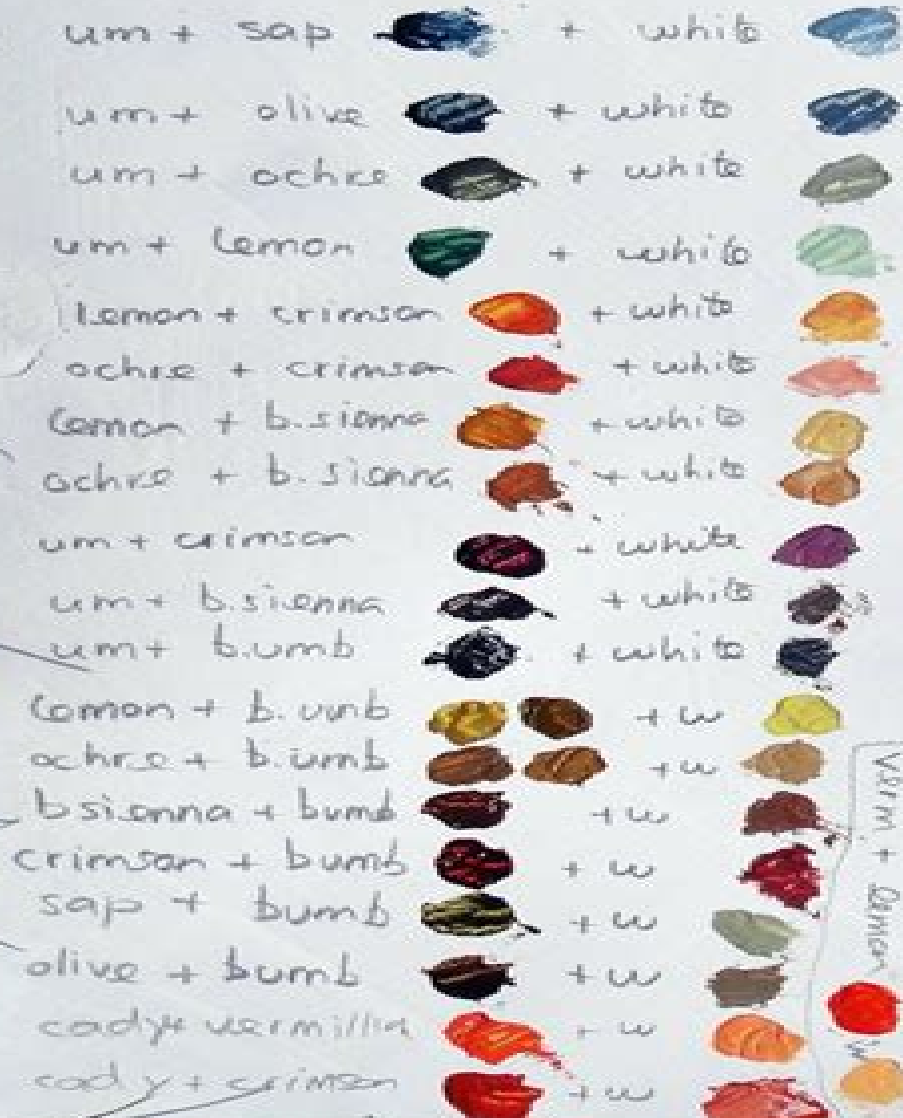 um + sap + white
um + olive + white
um + ochre + white
um + lemon + white
lemon + crimson + white
ochre + crimson + white
lemon + b.sienna + white
ochre + b.sienna + white
um + crimson + white
um + b.sienna + white
um + b.umb + white
lemon + b.umb + w
ochre + b.umb + w
b sienna + bumb + w
crimson + bumb + w
sap + bumb + w
olive + bumb + w
cad y + vermillin + w
cad y + crimson + w
verm + lemon
w